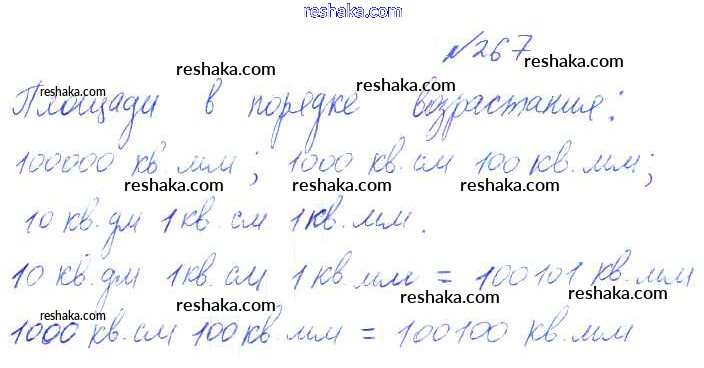 reshaka.com
№267
reshaka.com
reshaka.com
reshaka.com
Площади в порядке возрастания:
100000 кв. мм; 1000 кв. см 100 кв. мм;
reshaka.com
reshaka.com
reshaka.com
10 кв. дм 1 кв. см 1 кв. мм.
10 кв. дм 1 кв. см 1 кв. мм = 100101 кв. мм
reshaka.com
reshaka.com
reshaka.com
1000 кв. см 100 кв. мм = 100100 кв. мм